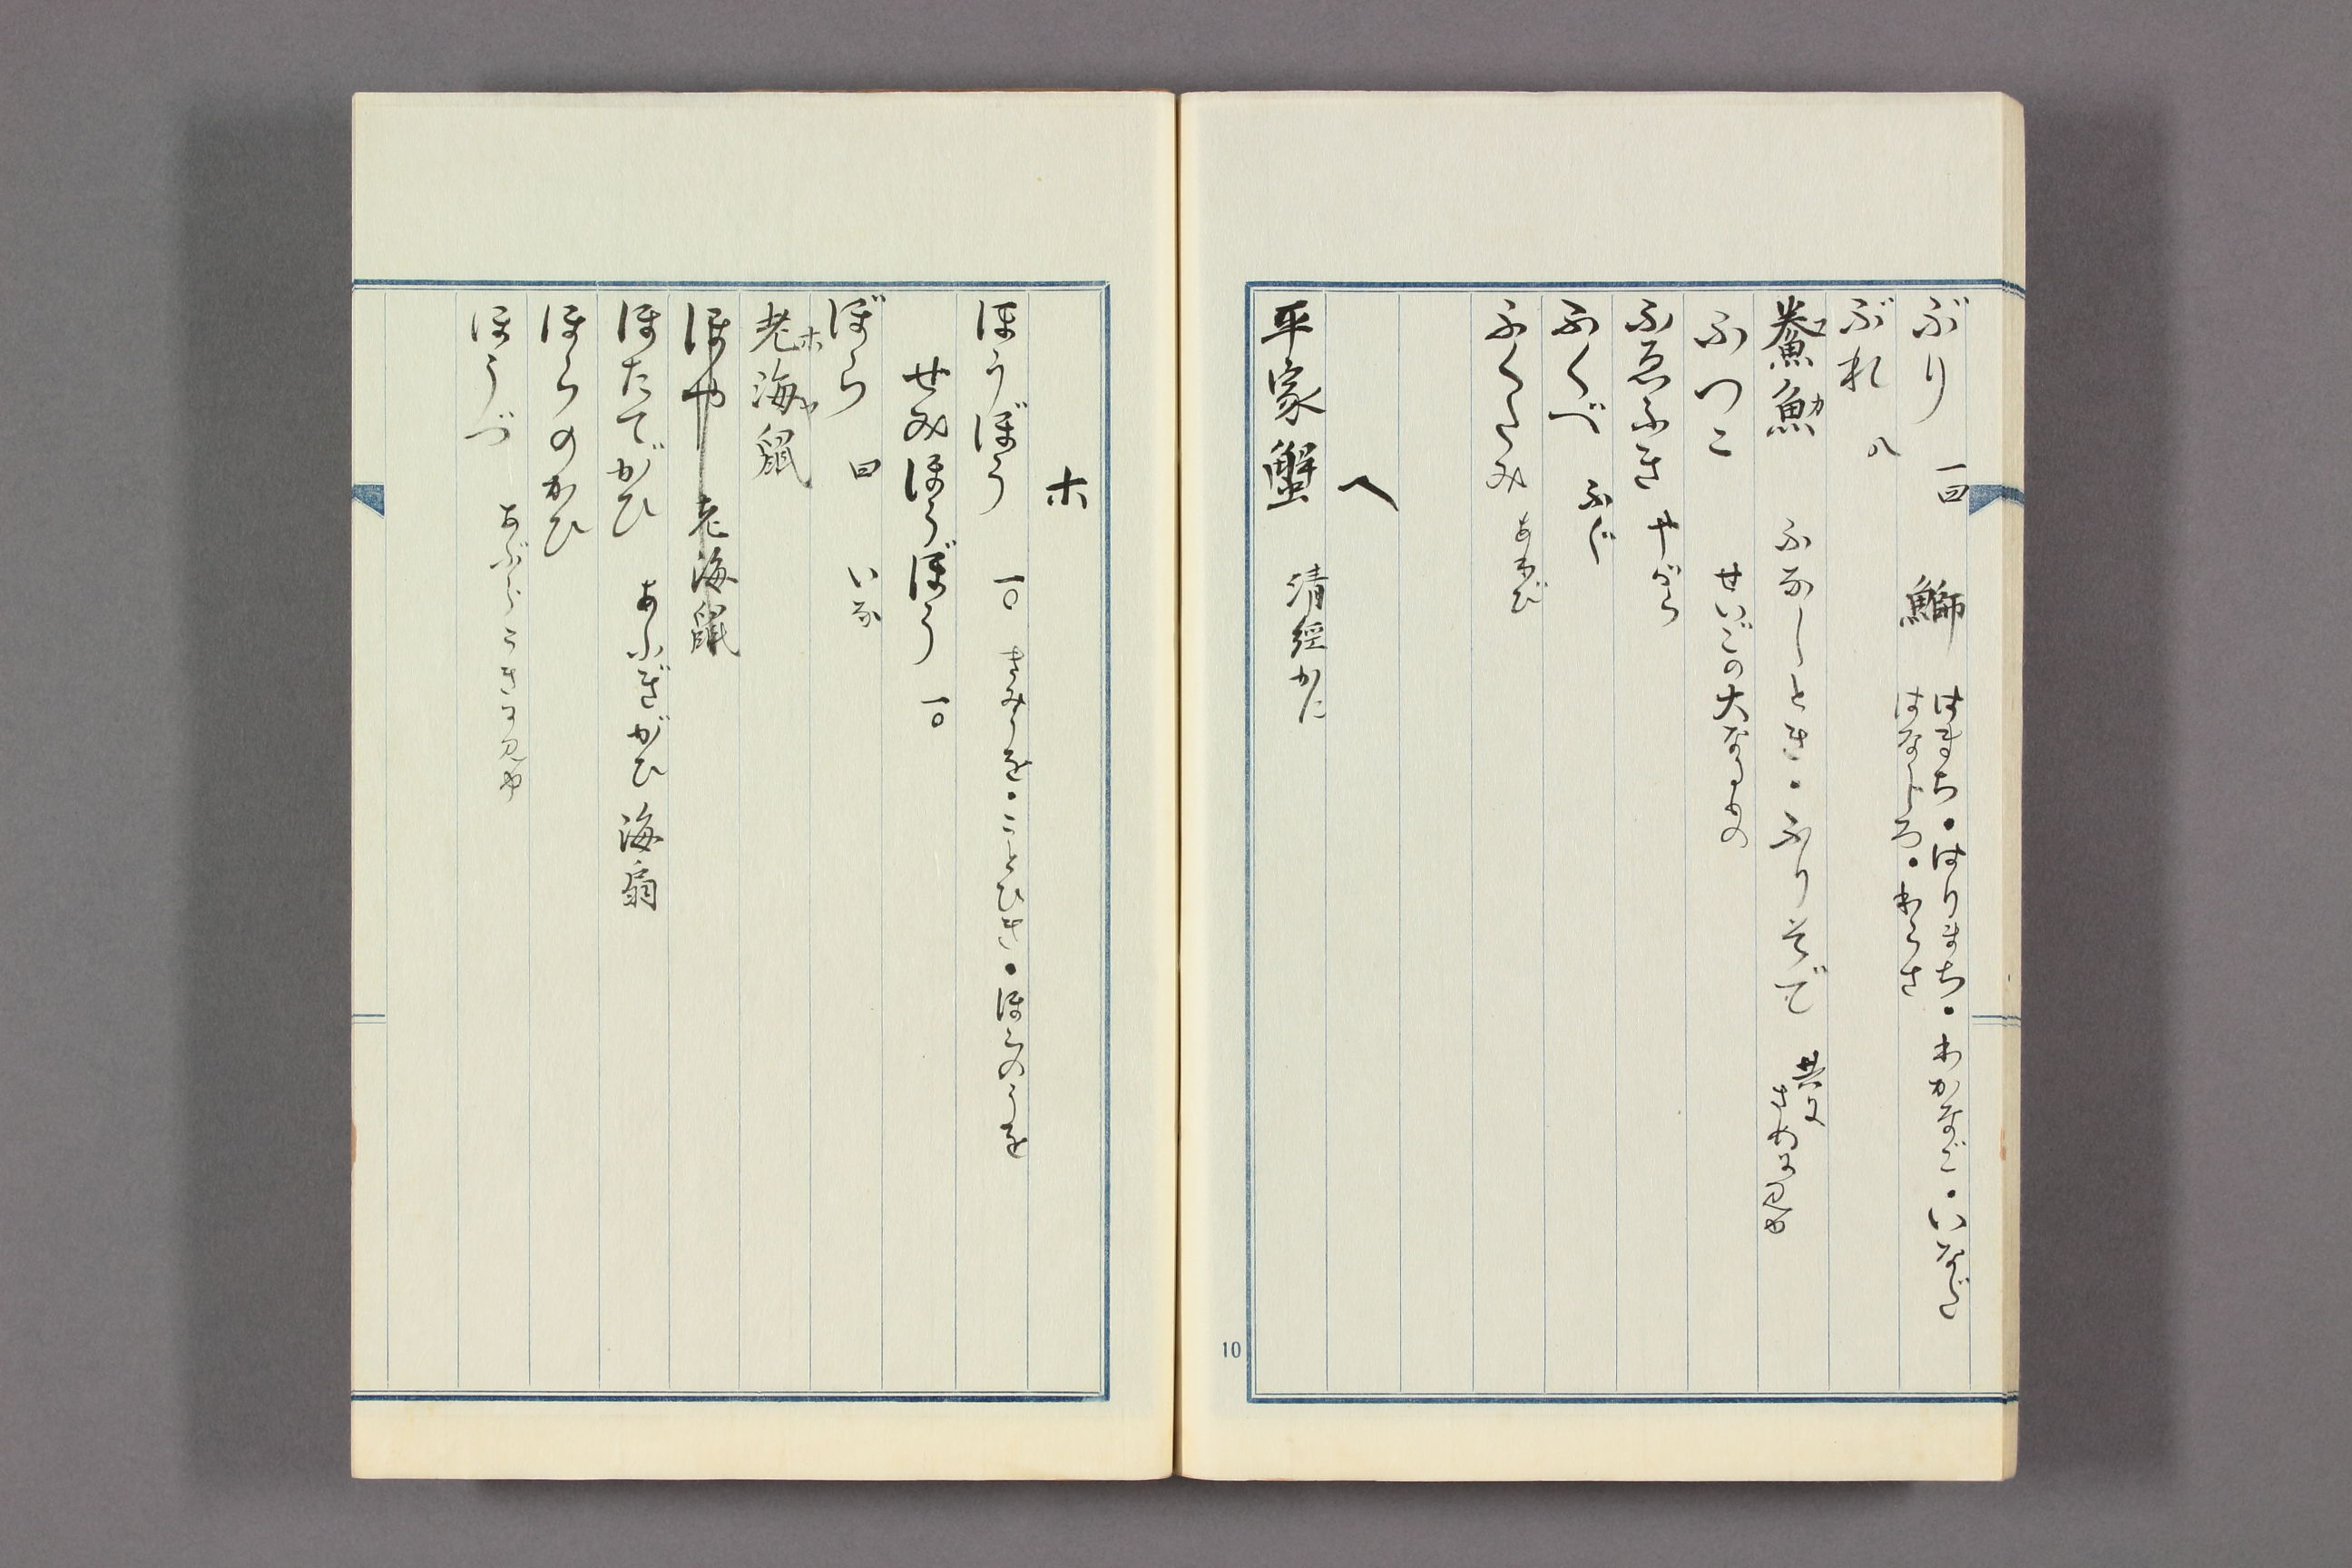 ぶり 一四 鰤 はまち・はりまち・わかなご・いなだ
はなじろ・わらさ
ぶれ 八
鯗魚 フカ ふなしとき・ふりそで 共ニ
さめヲ見よ
ふつこ せいごの大なるもの
ふゑふき やがら
ふくべ ふぐ
ふくため あわび
ヘ
平家蟹 清経かに
10
ホ
ほうぼう 一〇 きみうを・ことひき・ほらのうを
せみほうぼう 一〇
ぼら 四 いな
老海鼠 ホヤ
ほや 老海鼠
ほたてがひ あふぎがひ 海扇
ほらのかひ
ほうづ あぶらこきヲ見よ